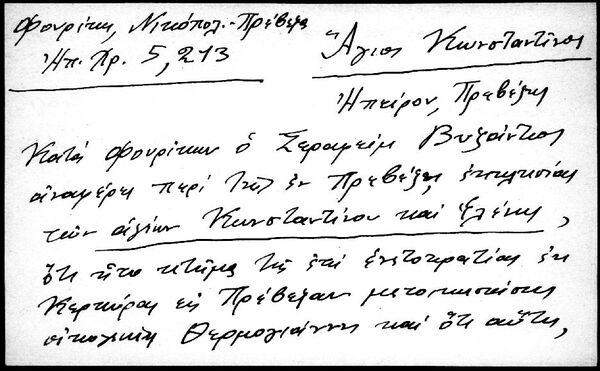 Φουρίκη, Νικόπολ.-Πρέβεζα
Ἠπ. Χρ. 5, 213
Ἅγιος Κωνσταντῖνος
Ἠπείρου, Πρεβέζης
Κατά Φουρίκην ὁ Σεραφείμ Βυζάντιος
ἀναφέρει περί τῆς ἐν Πρεβέζῃ ἐκκλησίας
τῶν ἁγίων Κωνσταντίνου καί Ἑλένης,
ὅτι ἦτο κτῆμα τῆς ἐπί ἐνετοκρατίας ἐκ
Κερκύρας εἰς Πρέβεζαν μετοικησάσης
οἰκογενείας Θερμογιάννη καί ὅτι αὕτη,